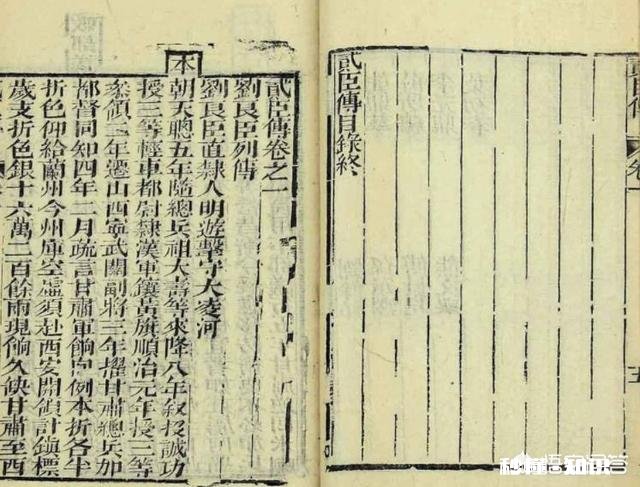 貳臣傳目錄終
貳臣傳卷之一
劉良臣列傳
劉良臣直隸人明遊擊守大凌河
本朝天聰五年隨總兵祖大壽等來降八年敘投誠功
授三等輕車都尉隸漢軍鑲黃旗順治元年授二等
叅領二年遷山西寧武關副將三年擢甘肅總兵加
都督同知四年二月疏言甘肅軍餉向例本折各半
折色仰給蘭州今州庫空虛須赴西安開領計鎮標
歲支折色銀十六萬二百餘兩現餉久缺甘肅至西
悟空问答